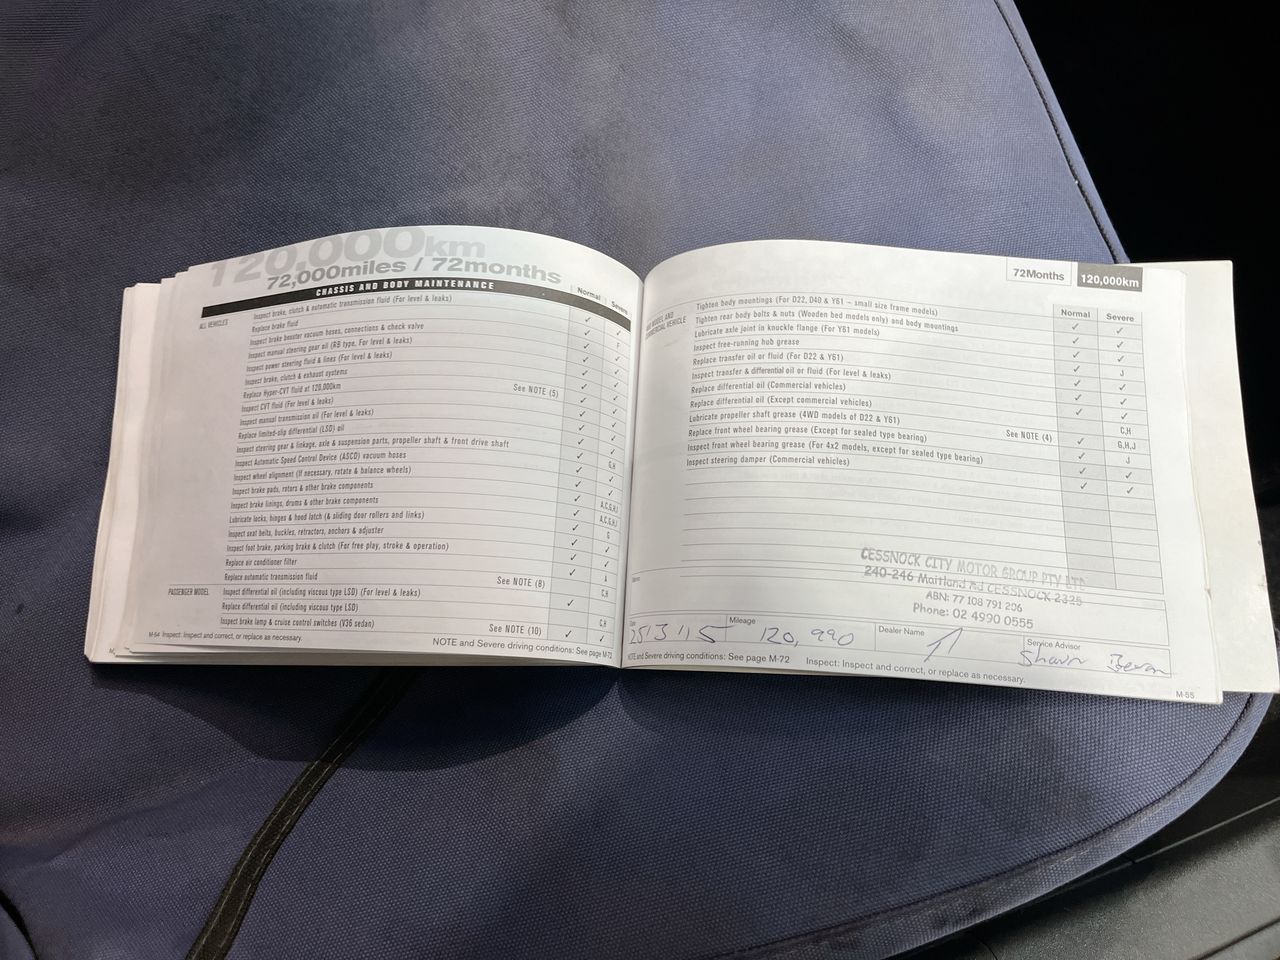 120,000km
72,000miles / 72months
CHASSIS AND BODY MAINTENANCE
Normal Severe
ALL VEHICLES
Inspect brake, clutch & automatic transmission fluid (For level & leaks) ✓ ✓
Replace brake fluid ✓ F
Inspect brake booster vacuum hoses, connections & check valve ✓ ✓
Inspect manual steering gear oil (RB type, For level & leaks) ✓ ✓
Inspect power steering fluid & lines (For level & leaks) ✓ ✓
Inspect brake, clutch & exhaust systems ✓ ✓
Replace Hyper-CVT fluid at 120,000km See NOTE (5) ✓ ✓
Inspect CVT fluid (For level & leaks) ✓ ✓
Inspect manual transmission oil (For level & leaks) ✓ ✓
Replace limited-slip differential (LSD) oil
Inspect steering gear & linkage, axle & suspension parts, propeller shaft & front drive shaft ✓ G,H
Inspect Automatic Speed Control Device (ASCD) vacuum hoses ✓ ✓
Inspect wheel alignment (If necessary, rotate & balance wheels) ✓ ✓
Inspect brake pads, rotors & other brake components ✓ A,C,G,H,I
Inspect brake linings, drums & other brake components ✓ A,C,G,H,I
Lubricate locks, hinges & hood latch (& sliding door rollers and links) ✓ G
Inspect seat belts, buckles, retractors, anchors & adjuster ✓ ✓
Inspect foot brake, parking brake & clutch (For free play, stroke & operation) ✓ ✓
Replace air conditioner filter ✓ A
Replace automatic transmission fluid See NOTE (8) C,H
PASSENGER MODEL
Inspect differential oil (including viscous type LSD) (For level & leaks) ✓
Replace differential oil (including viscous type LSD) C,H
Inspect brake lamp & cruise control switches (V36 sedan) See NOTE (10) ✓ ✓
M-54 Inspect: Inspect and correct, or replace as necessary.
NOTE and Severe driving conditions: See page M-72
72Months 120,000km
Normal Severe
Tighten body mountings (For D22, D40 & Y61 – small size frame models) ✓ ✓
Tighten rear body bolts & nuts (Wooden bed models only) and body mountings ✓ ✓
Lubricate axle joint in knuckle flange (For Y61 models) ✓ ✓
Inspect free-running hub grease ✓ J
Replace transfer oil or fluid (For D22 & Y61) ✓ ✓
Inspect transfer & differential oil or fluid (For level & leaks) ✓ ✓
Replace differential oil (Commercial vehicles) ✓ ✓
Replace differential oil (Except commercial vehicles) C,H
Lubricate propeller shaft grease (4WD models of D22 & Y61) See NOTE (4) ✓ G,H,J
Replace front wheel bearing grease (Except for sealed type bearing) ✓ J
Inspect front wheel bearing grease (For 4x2 models, except for sealed type bearing) ✓ ✓
Inspect steering damper (Commercial vehicles) ✓ ✓
CESSNOCK CITY MOTOR GROUP PTY LTD
240-246 Maitland Rd CESSNOCK 2325
ABN: 77 108 791 206
Phone: 02 4990 0555
Date 25/3/15 Mileage 120,990 Dealer Name Service Advisor Shaun Bevan
NOTE and Severe driving conditions: See page M-72 Inspect: Inspect and correct, or replace as necessary.
M-55